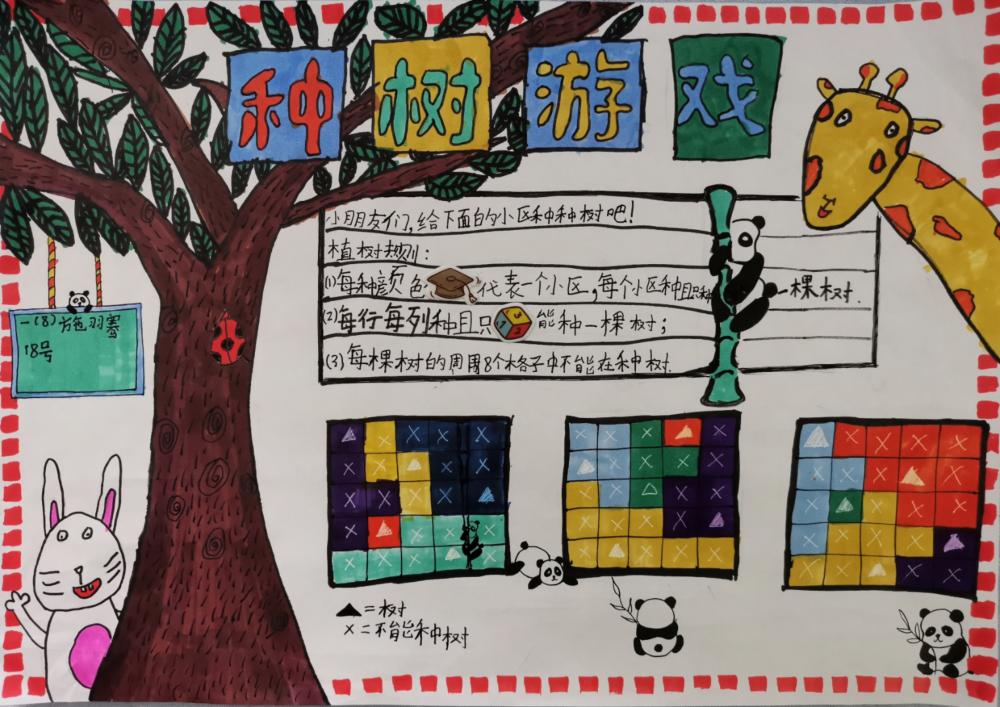 种树游戏
小朋友们,给下面的小区种种树吧!
植树规则:
(1)每种颜色代表一个小区,每个小区种且只种一棵树.
(2)每行每列种且只能种一棵树;
(3)每棵树的周围8个格子中不能在种树.
一(8)施羽骞
18号
▲=树
×=不能种树